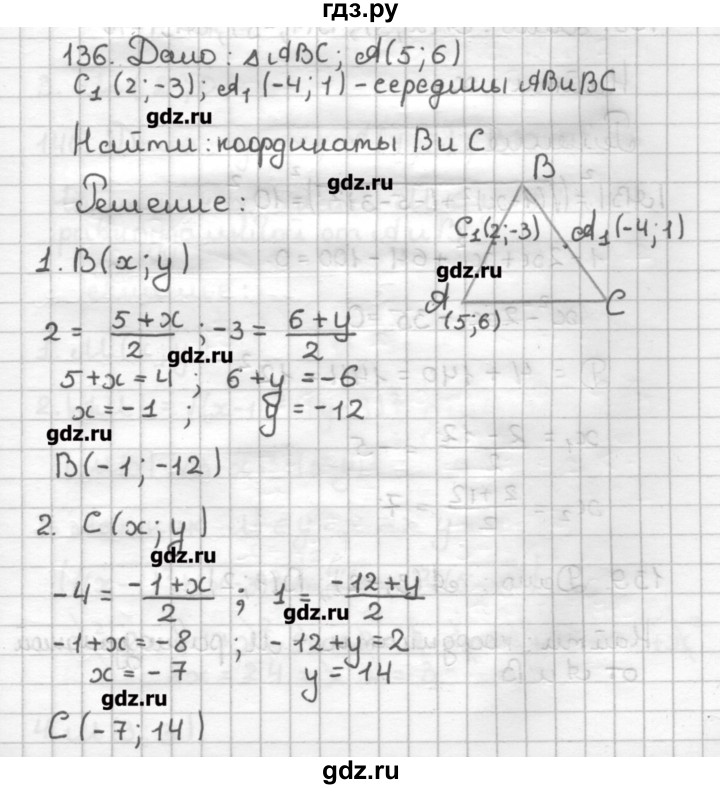 гдз.ру
136. Дано: ΔABC; A(5;6)
C₁(2;-3); A₁(-4;1) - середины AB и BC
gdz.ru
Найти: координаты B и C
gdz.ru
Решение:
B
C₁(2;-3)
A₁(-4;1)
gdz.ru
A
(5;6)
C
1. B(x;y)
2 = (5+x)/2 ; -3 = (6+y)/2
gdz.ru
5+x=4 ; 6+y=-6
x=-1 ; y=-12
gdz.ru
B(-1;-12)
2. C(x;y)
gdz.ru
-4 = (-1+x)/2 ; 1 = (-12+y)/2
gdz.ru
-1+x=-8 ; -12+y=2
x=-7 y=14
gdz.ru
C(-7;14)
gdz.ru